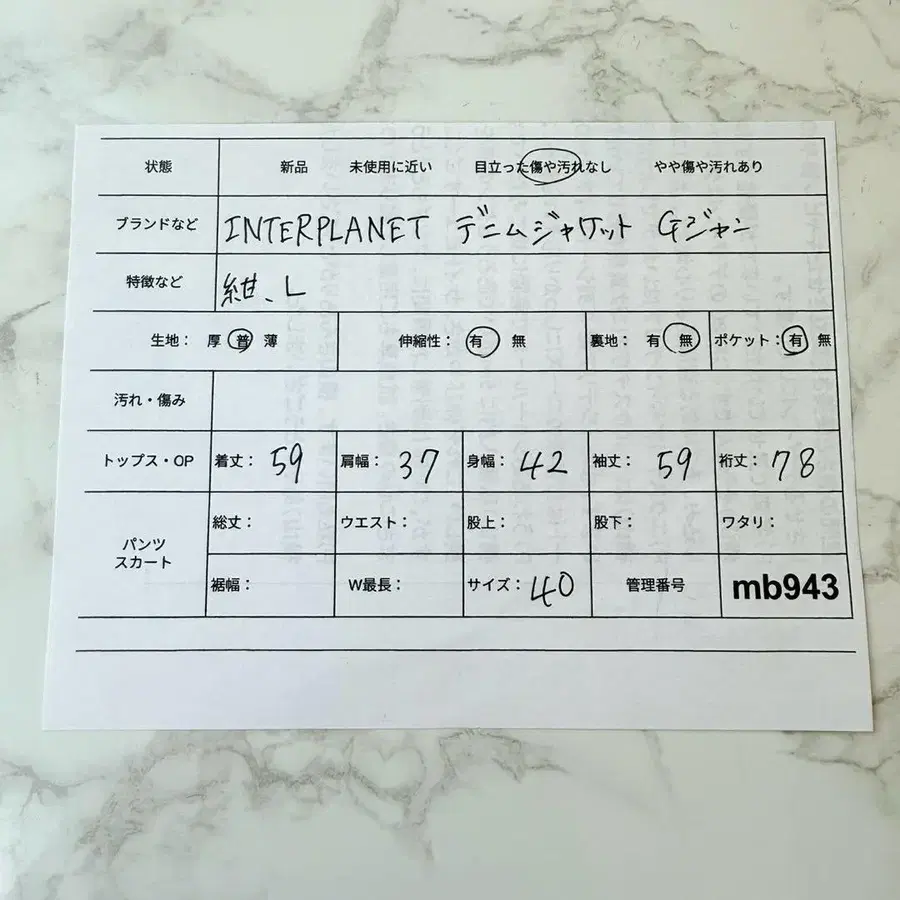 状態 新品 未使用に近い 目立った傷や汚れなし やや傷や汚れあり
ブランドなど INTERPLANET デニムジャケット Gジャン
特徴など 紺、L
生地： 厚 普 薄 伸縮性： 有 無 裏地： 有 無 ポケット： 有 無
汚れ・傷み
トップス・OP 着丈： 59 肩幅： 37 身幅： 42 袖丈： 59 裄丈： 78
パンツ
スカート
総丈： ウエスト： 股上： 股下： ワタリ：
裾幅： W最長： サイズ： 40 管理番号 mb943